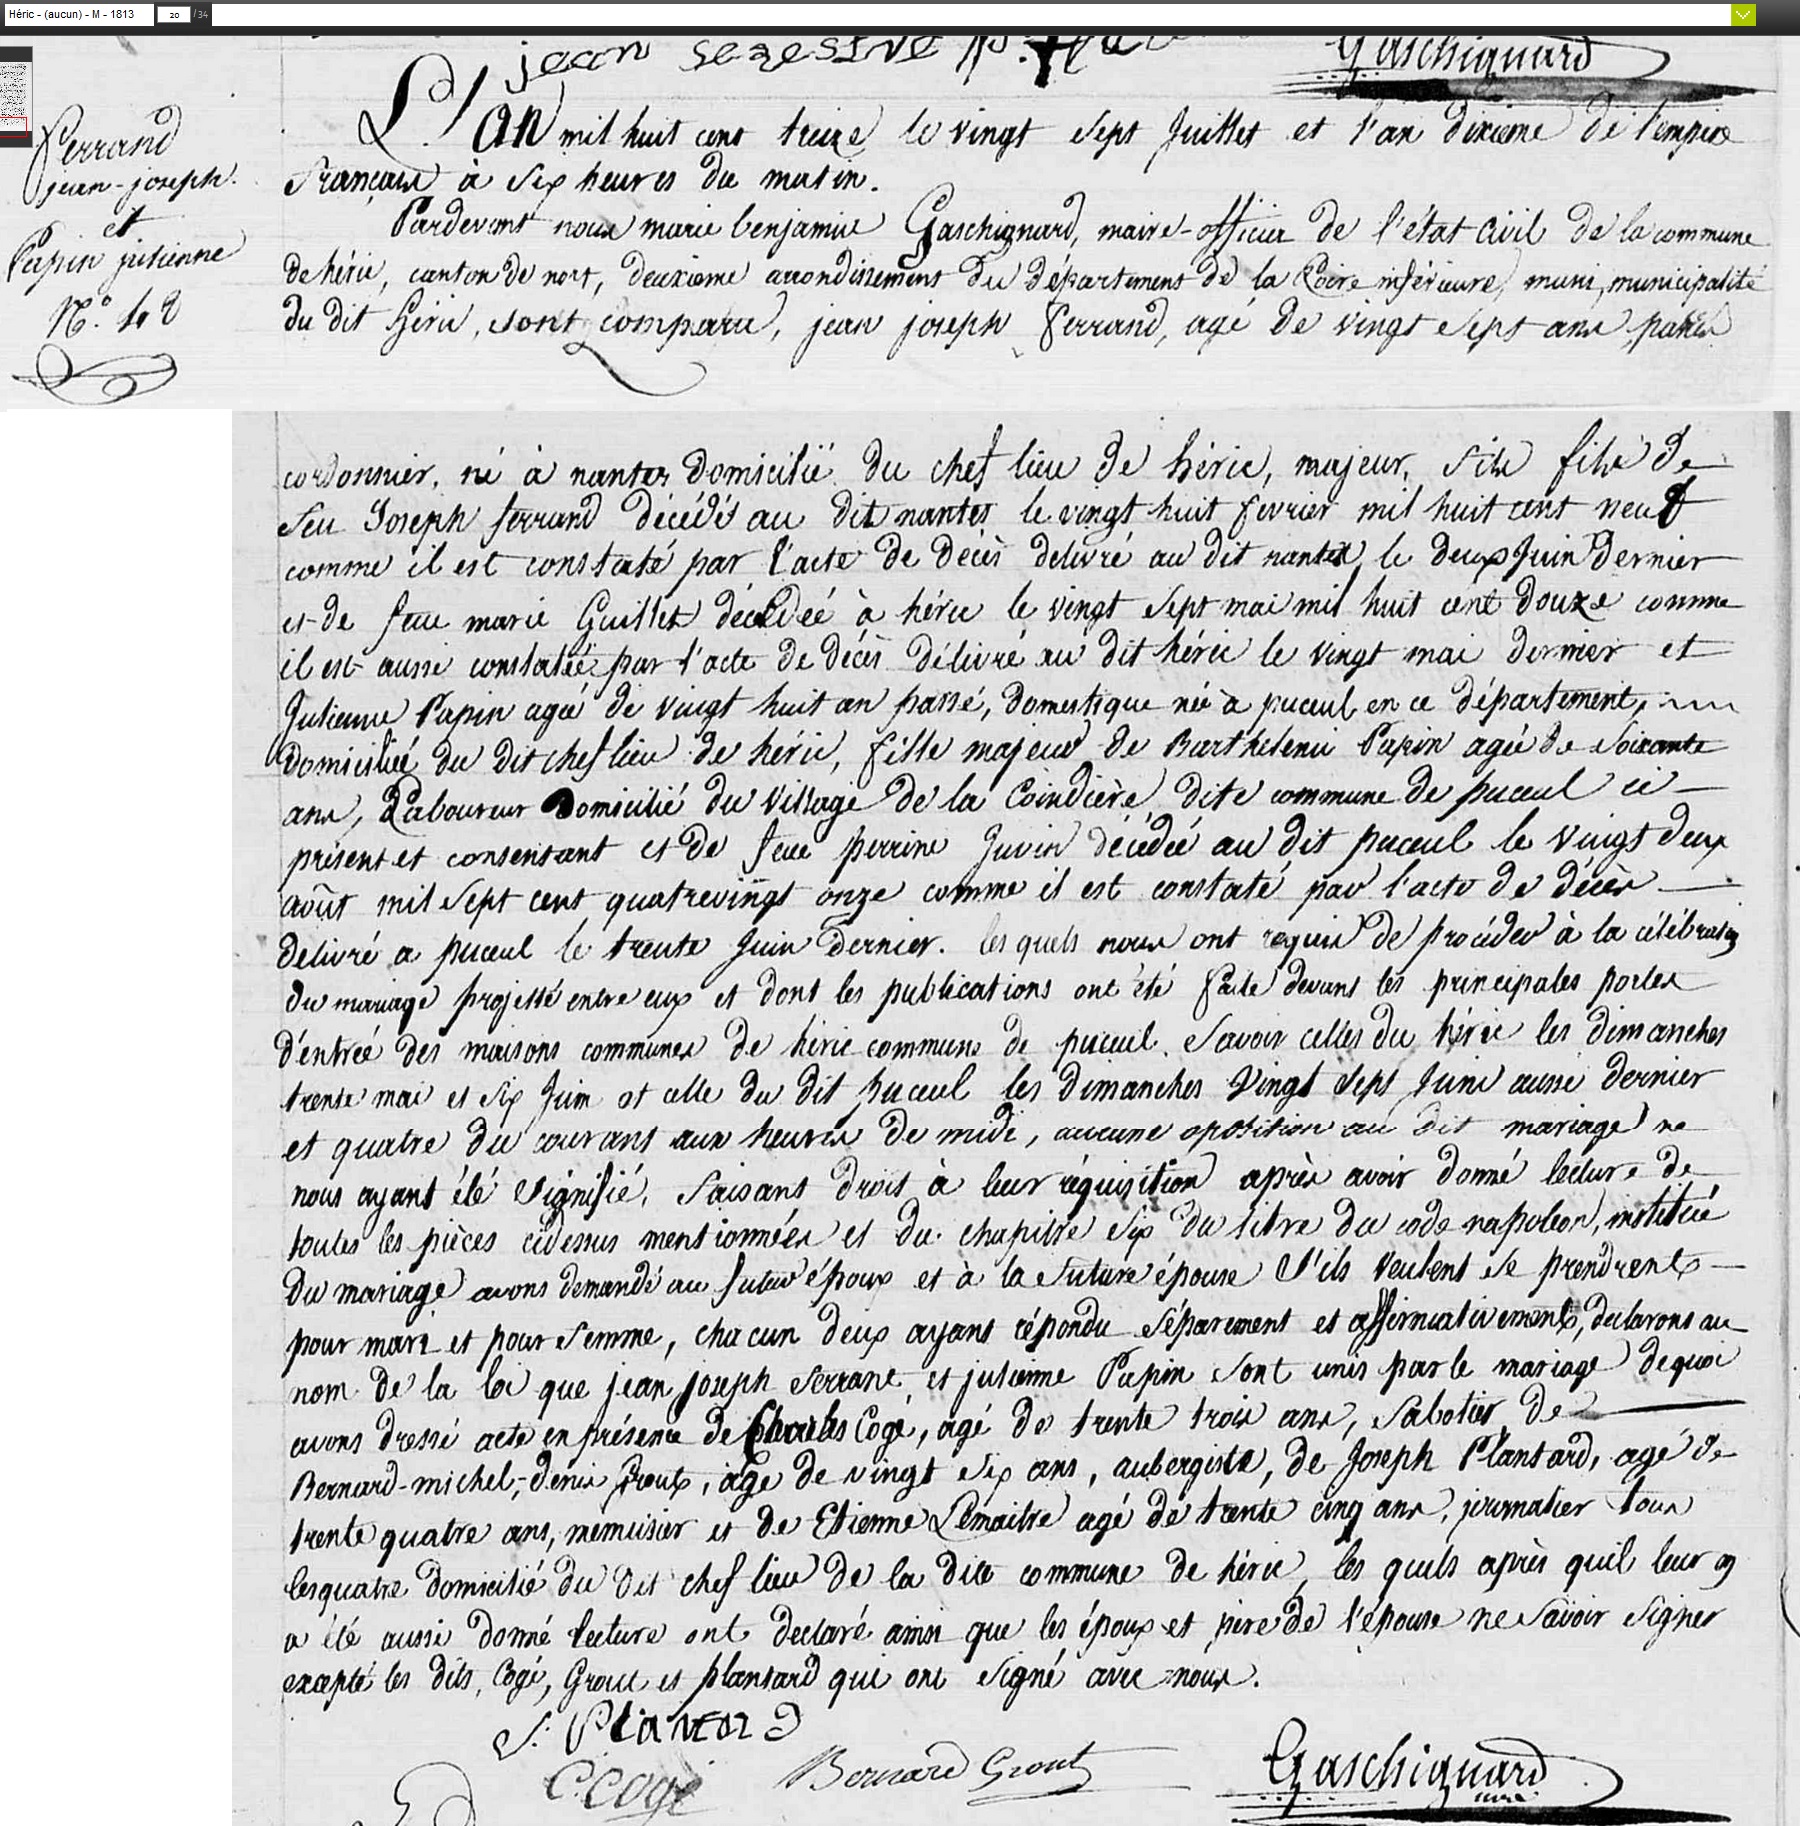 Héric - (aucun) - M - 1813
20 / 34
jean
Gaschignard
Ferrand
jean-joseph.
et
Papin julienne
N.°
L'An mil huit cent treize le vingt sept Juillet et l'an dixieme de l'empire
français à six heures du matin.
Pardevant nous marie benjamin Gaschignard, maire-officier de l'état civil de la commune
de héric, canton de nort, deuxieme arrondissement du département de la Loire inférieure, municipalité
du dit héric, sont comparu, jean joseph ferrand, agé de vingt sept ans passés
cordonnier, né à nantes domicilié du chef lieu de héric, majeur, fils de
feu Joseph ferrand décédé au dit nantes le vingt huit fevrier mil huit cent neuf
comme il est constaté par l'acte de décès delivré au dit nantes le deux Juin dernier
et de feue marie Guillet décédée à héric le vingt sept mai mil huit cent douze comme
il est aussi constatée par l'acte de décès délivré au dit héric le vingt mai dernier et
Julienne Papin agée de vingt huit an passé, domestique née à puceul en ce département,
domiciliée du dit chef lieu de héric, fille majeur de Barthelemi Papin agée de soixante
ans, Laboureur domicilié du village de la Coindière dite commune de puceul ci
présent et consentant et de feue perrine Juvin décédée au dit puceul le vingt deux
août mil sept cent quatrevingt onze comme il est constaté par l'acte de décès
delivré a puceul le trente Juin dernier. les quels nous ont requis de procéder à la célébration
du mariage projetté entre eux et dont les publications ont été faite devant les principales portes
d'entrée des maisons communes de héric commune de puceul. Savoir celles du héric les dimanches
trente mai et six Juin et celle du dit puceul les dimanches vingt sept Juin aussi dernier
et quatre du courant aux heures de midi, aucune oposition au dit mariage ne
nous ayant été signifié, faisant droit à leur réquisition après avoir donné lecture de
toutes les pièces cidessus mentionnées et du chapitre six du titre du code napoleon, institué
du mariage avons demandé au futur époux et à la future épouse s'ils veulent se prendrent
pour mari et pour femme, chacun deux ayant répondu séparement et affirmativement, déclarons au
nom de la loi que jean joseph ferrand et julienne Papin sont unis par le mariage de quoi
avons dressé acte en présence de Charles Cogé, agé de trente trois ans, sabotier de
Bernard-michel-denis Grout, âgé de vingt six ans, aubergiste, de Joseph Plantard, agé de
trente quatre ans, menuisier et de Etienne Lemaitre agé de trente cinq ans, journalier tous
les quatre domicilié du dit chef lieu de la dite commune de héric, les quels après quil leur
a été aussi donné lecture ont declaré ainsi que les époux et père de l'épouse ne savoir signer
excepté les dits, Cogé, Grout et plantard qui ont signé avec nous.
J. Plantard
C Cogé
Bernard Grout
Gaschignard